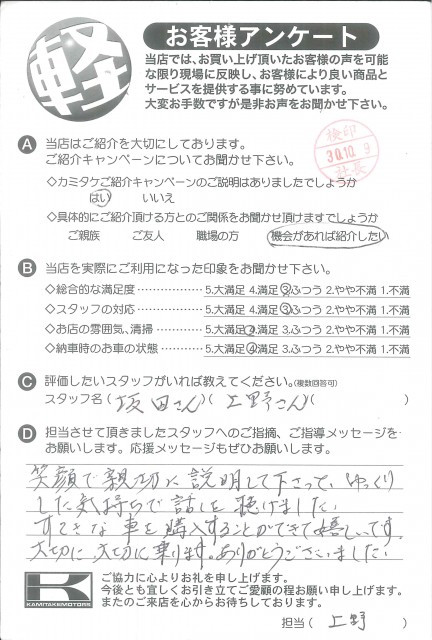 軽
お客様アンケート
当店では、お買い上げ頂いたお客様の声を可能
な限り現場に反映し、お客様により良い商品と
サービスを提供する事に努めています。
大変お手数ですが是非お声をお聞かせ下さい。
A 当店はご紹介を大切にしております。
ご紹介キャンペーンについてお聞かせ下さい。
検印
30.10.9
社長
◇カミタケご紹介キャンペーンのご説明はありましたでしょうか
はい いいえ
◇具体的にご紹介頂ける方とのご関係をお聞かせ頂けますでしょうか
ご親族 ご友人 職場の方 機会があれば紹介したい
B 当店を実際にご利用になった印象をお聞かせ下さい。
◇総合的な満足度 ················ 5.大満足 4.満足 3.ふつう 2.やや不満 1.不満
◇スタッフの対応 ················ 5.大満足 4.満足 3.ふつう 2.やや不満 1.不満
◇お店の雰囲気、清掃 ··········· 5.大満足 4.満足 3.ふつう 2.やや不満 1.不満
◇納車時のお車の状態 ··········· 5.大満足 4.満足 3.ふつう 2.やや不満 1.不満
C 評価したいスタッフがいれば教えてください。(複数回答可)
スタッフ名 ( 坂田さん ) ( 上野さん ) ( )
D 担当させて頂きましたスタッフへのご指摘、ご指導メッセージを
お願いします。応援メッセージもぜひお願いします。
笑顔で親切に説明して下さって、ゆっくり
した気持ちで話しを聴けました。
すてきな車を購入することができて嬉しいです。
大切に、大切に乗ります。ありがとうございました。
K
KAMITAKEMOTORS
ご協力に心よりお礼を申し上げます。
今後とも宜しくお引き立てご愛顧の程お願い申し上げます。
またのご来店を心からお待ちしております。
担当 ( 上野 )